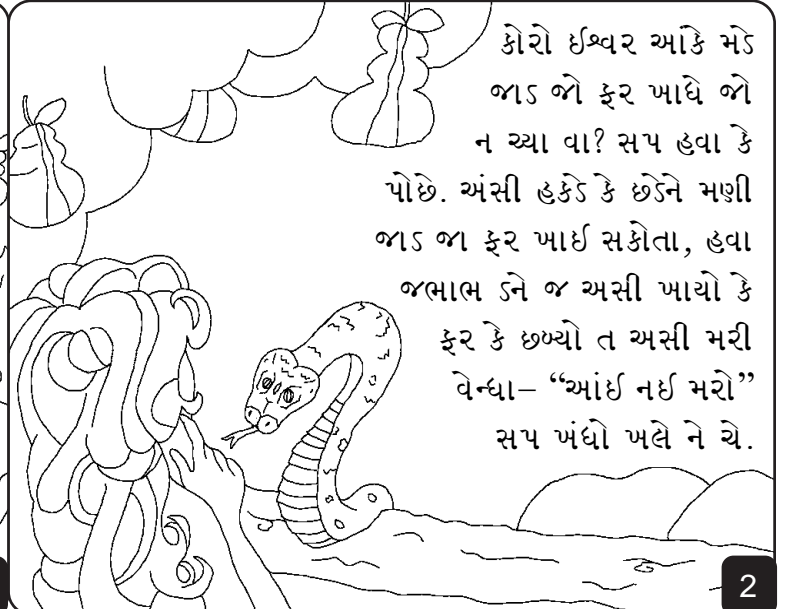 કોરો ઈશ્વર આંકે મડે
જાડ જો ફર ખાધે જો
ન ચ્યા વા? સપ હવા કે
પોછે. અંસી હકડે કે છડેને મણી
જાડ જા ફર ખાઈ સકોતા, હવા
જભાભ ડને જ અસી ખાયો કે
ફર કે છબ્યો ત અસી મરી
વેન્ધા– “આંઈ નઈ મરો”
સપ ખંધો ખલે ને ચે.
2